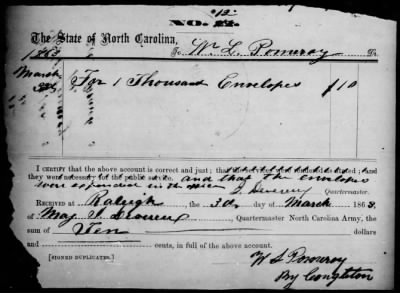 12
No. 22.
The State of North Carolina,
To W. L. Pomeroy Dr.
1863
March
3d For 1 Thousand Envelopes $10
I CERTIFY that the above account is correct and just; that the services were rendered as stated; and
they were necessary for the public service. and that the envelopes
were expended in the office J. Devereux Quartermaster.
RECEIVED AT Raleigh the 3d day of March 1863.
of Maj J. Devereux, Quartermaster North Carolina Army, the
sum of Ten dollars
and cents, in full of the above account.
[SIGNED DUPLICATES.] W L Pomeroy
By Congleton